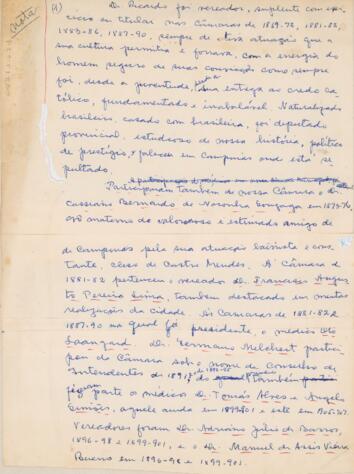 Nota
(1) Dr. Ricardo foi vereador, suplente com exer-
cício em titular nas Câmaras de 1869-72, 1881-82,
1883-86, 1887-90, sempre de boa atuação que a
sua cultura permitia e forçava, com a energia do
homem seguro de suas convicções como sempre
foi, desde a juventude, sua entrega ao credo ca-
tólico, fundamentado e inabalável. Naturalizado
brasileiro, casado com brasileira, foi deputado
provincial, estudioso de nossa história, político
de prestígio, faleceu em Campinas onde está se-
pultado.
Participaram também de nossa Câmara o dr.
Cassiano Bernardo de Noronha Gonzaga em 1873-76,
avô materno do valoroso e estimado amigo de
de Campinas pela sua atuação e cons-
tante, Celso de Castro Mendes. À Câmara de
1881-82 pertenceu o vereador Dr. Francisco Augus-
to Pereira Lima, também destacado em muitas
realizações da cidade. Às Câmaras de 1881-82 e
1887-90 na qual foi presidente, o médico Oto
Langgard. Dr. Germano Melchert partici-
pou da Câmara sob o nome de Conselho de
Intendentes de 1891, do também
fizeram parte os médicos Dr. Tomás Alves e Angelo
Simões, aquele ainda em 1899-901 e este em
Vereadores foram Dr. Adriano Júlio de Barros,
1896-98 e 1899-901, e o Dr. Manuel de Assis Vieira
Bueno em 1896-98 e 1899-901.